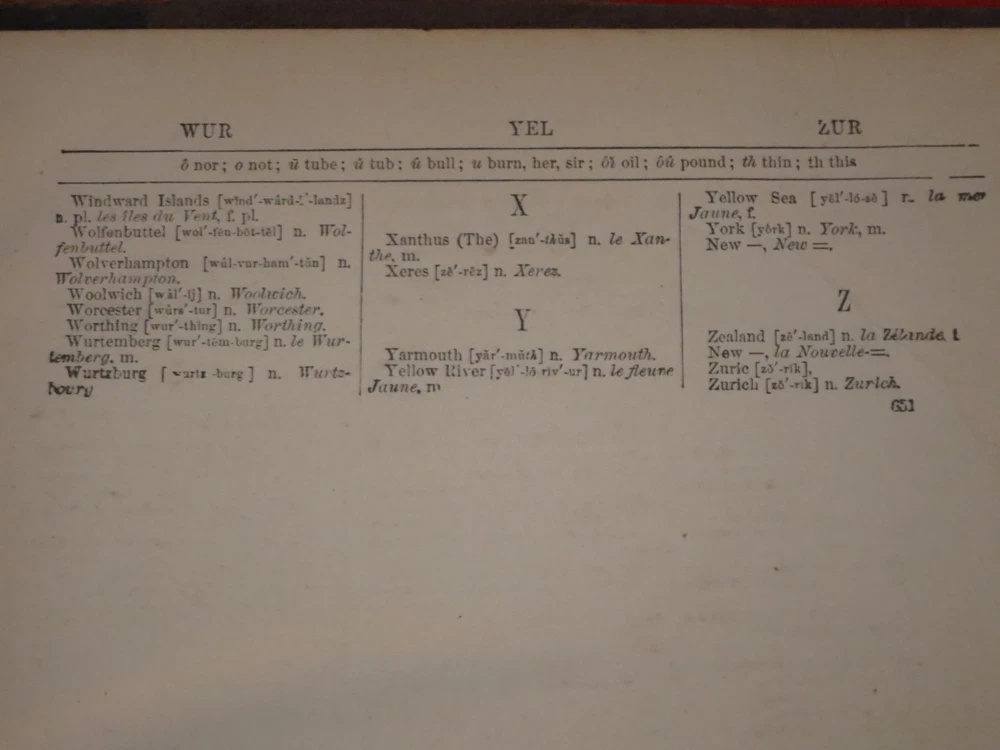 WUR YEL ZUR
ô nor; o not; ū tube; ŭ tub; û bull; u burn, her, sir; ŏĭ oil; ŏŭ pound; th thin; th this
Windward Islands [wĭnd'-wârd-ī'-landz]
n. pl. les îles du Vent, f. pl.
Wolfenbuttel [wol'-fen-bŏt-tĕl] n. Wol-
fenbuttel.
Wolverhampton [wûl-vur-ham'-tŏn] n.
Wolverhampton.
Woolwich [wûl'-ĭj] n. Woolwich.
Worcester [wûrs'-tur] n. Worcester.
Worthing [wur'-thĭng] n. Worthing.
Wurtemberg [wur'-tĕm-burg] n. le Wur-
temberg. m.
Wurtzburg [wurtz-burg] n. Wurtz-
bourg
X
Xanthus (The) [zan'-thŭs] n. le Xan-
the. m.
Xeres [zĕ'-rĕz] n. Xerez.
Y
Yarmouth [yär'-mŭth] n. Yarmouth.
Yellow River [yĕl'-lō rĭv'-ur] n. le fleuve
Jaune, m
Yellow Sea [yĕl'-lō-sē] n. la mer
Jaune, f.
York [yôrk] n. York, m.
New —, New =.
Z
Zealand [zē'-land] n. la Zélande, f.
New —, la Nouvelle-=.
Zuric [zŏ'-rĭk],
Zurich [zŏ'-rĭk] n. Zurich.
651